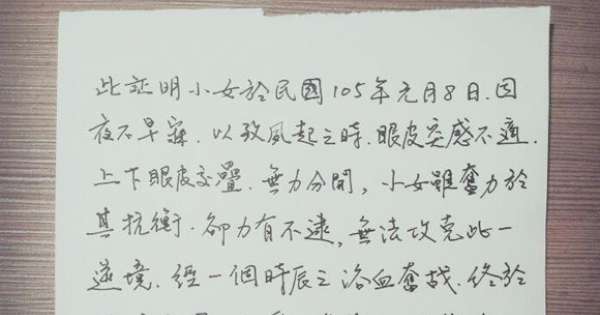 此証明小女於民國105年元月8日.因
夜不早寐.以致風起之時.眼皮突感不適.
上下眼皮交疊.無力分開，小女雖奮力於
其抗衡.卻力有不逮，無法攻克此一
逆境.經一個時辰之浴血奮战.終於